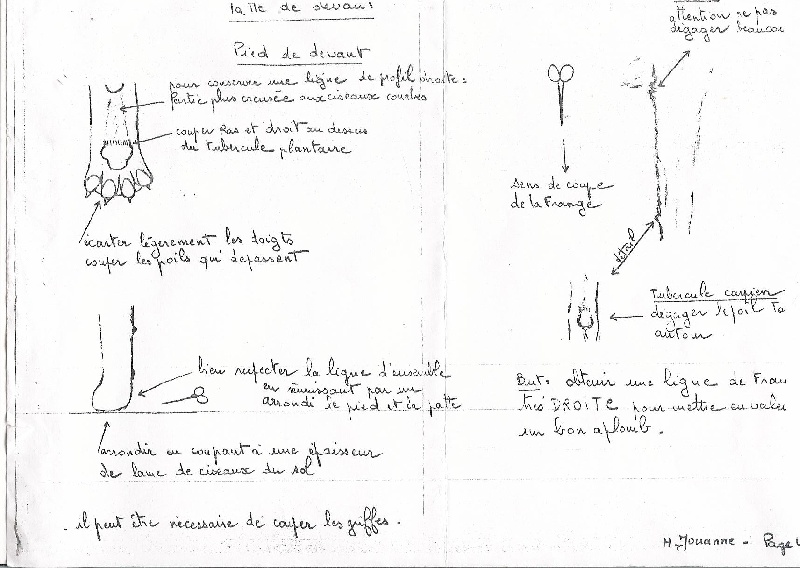 Patte de devant
Pied de devant
pour conserver une ligne de profil droite :
Partie plus creusée aux ciseaux courbes
couper Ras et droit au dessus
du tubercule plantaire
écarter légèrement les doigts
couper les poils qui dépassent
bien respecter la ligne d'ensemble
en réunissant par un
arrondi le pied et la patte
arrondir en coupant à une épaisseur
de lame de ciseaux du sol
. il peut être nécessaire de couper les griffes .
attention ne pas
dégager beaucou
Sens de coupe
de la Frange
détail
Tubercule carpien
dégager le poil
autour
But : obtenir une ligne de Fran
très DROITE pour mettre en valeu
un bon aplomb .
M. Jouanne - Page